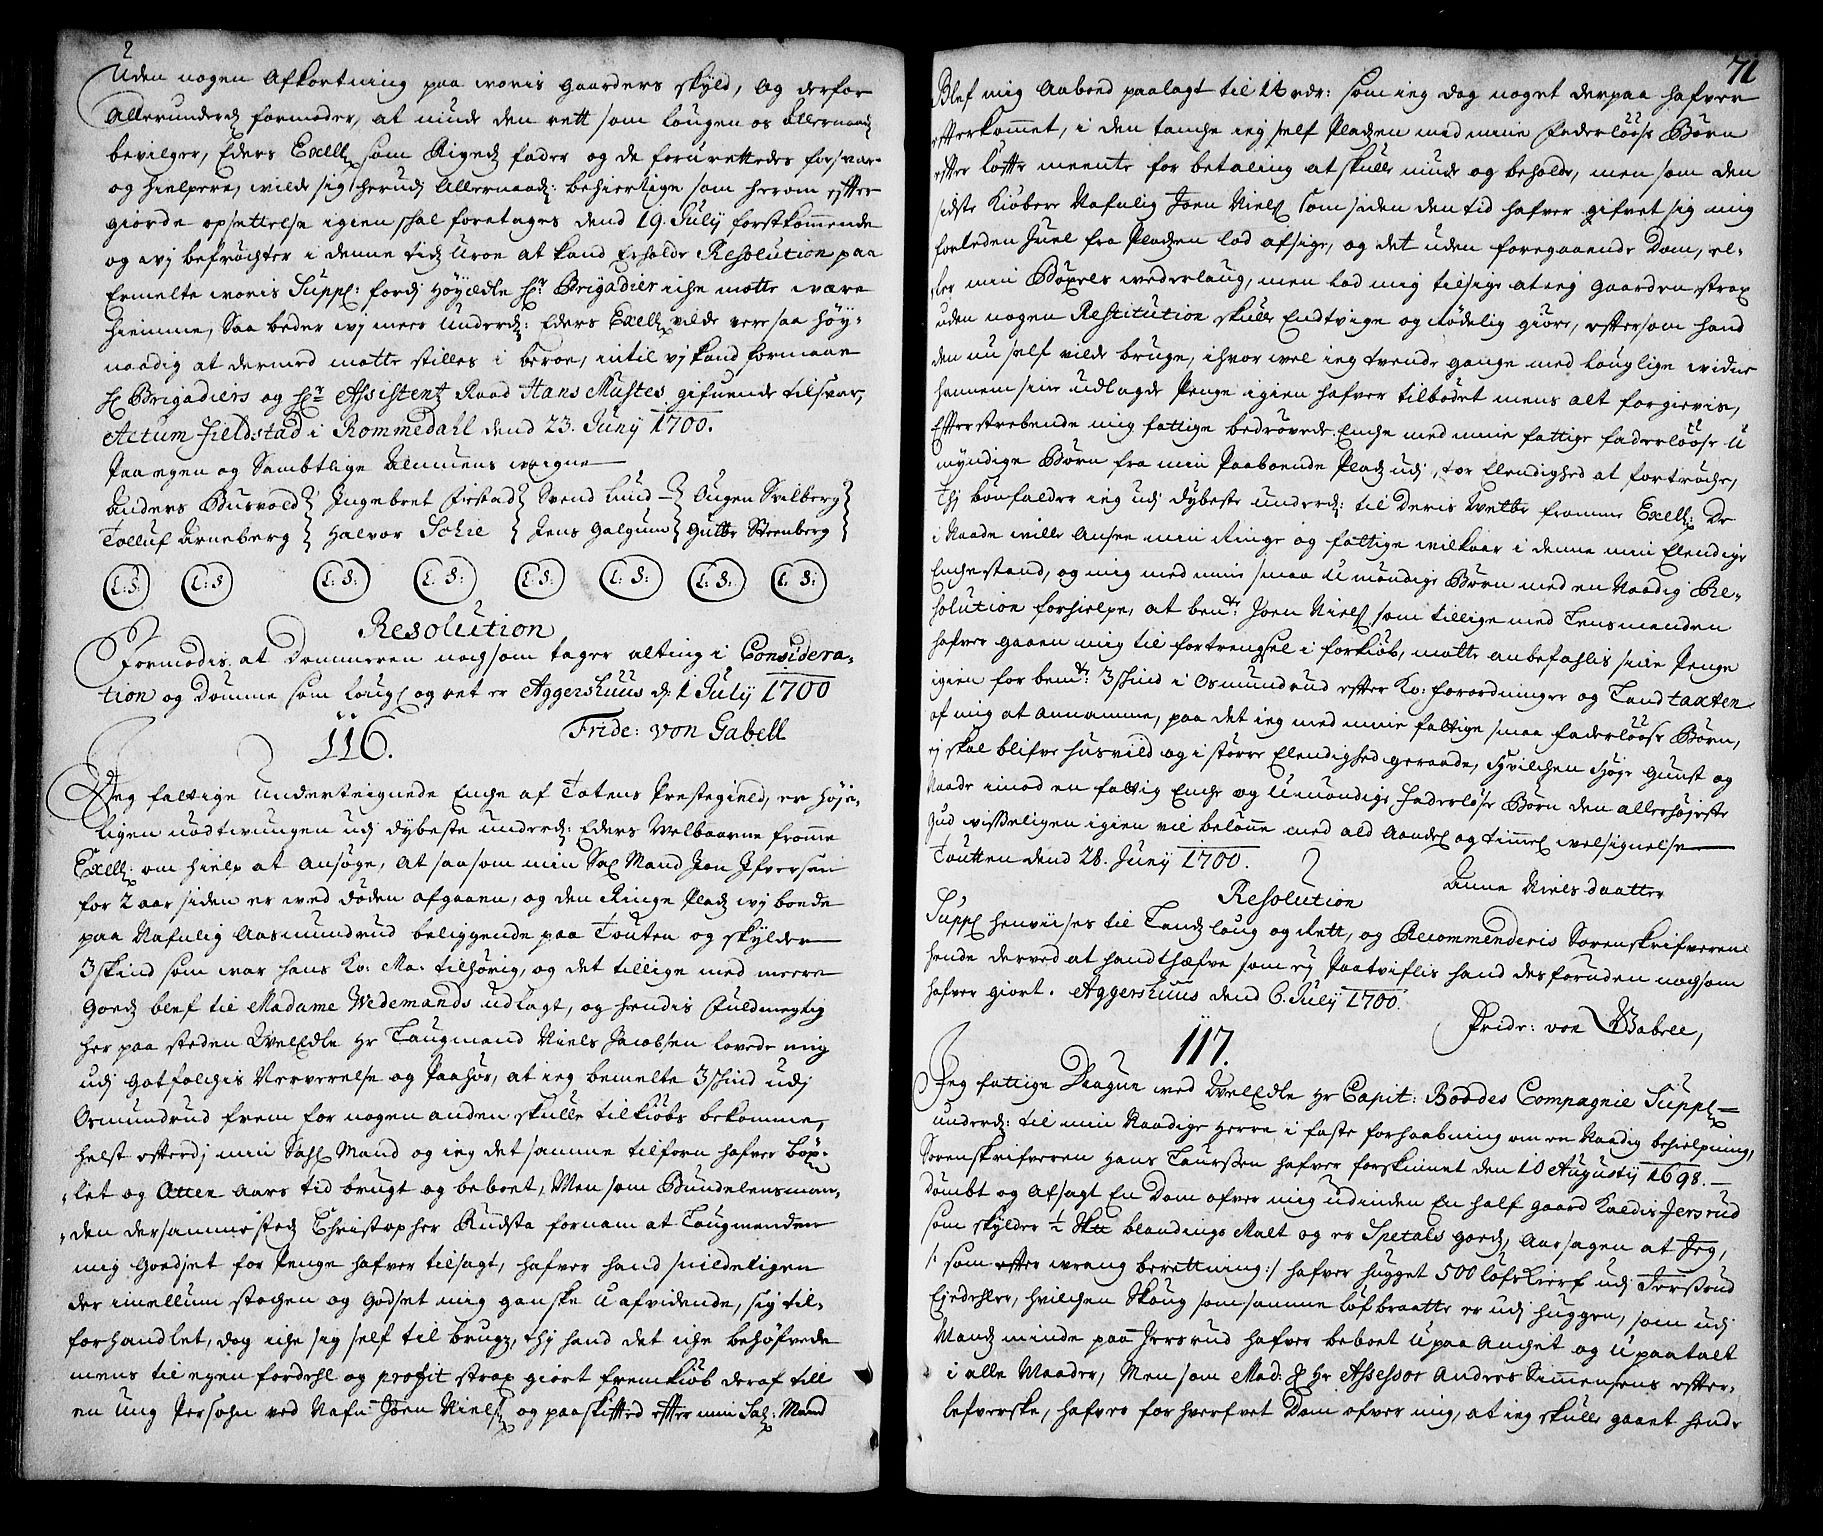 Uden nogen Afkortning paa woris gaarders skyld, og derfor
Allerunderd formoder, at niude den rett som Lougen os Allernaad
bevilger, Eders Excell som Rigens fader og de foruretteds forsvar
og hielpere, wilde sig herudj Allernaad: behiertige som herom effter
giorde opsettelse igien skal foretages dend 19. July forstkommende
og wj befrychter i denne tid Uroe at kand Erholde Resolution paa
Ermelte woris Suppl: fordj Høyædle Hr Brigadier iche motte være
hiemme, Saa beder wj meer Underd: Eders Excell vilde vere saa høy-
naadig at dermed motte stilles i beroe, intil vj kand formaae
H Brigadiers og Hr Assistentz Raad Hans Mustes gifuende tilsvar,
Actum Fieldstad i Rommedall dend 23. Juny 1700.
Paa egen og Sambtlige Almuens wegne
Anders Busvold Ingebret Firstad Svend Lund Augen Svilberg
Tolluf Arneberg Halvor Schie Jens Galgum Gutte Steenberg
L:S: L:S L:S: L:S: L:S: L:S: L:S: L:S:
Resolution
Formodis at Dommeren nochsom tager alting i Considera-
tion og Dømme som Loug og ret er Aggershuus d: 1 July 1700
Fride: von Gabell
116.
Jeg fattige Underteignede Enche af Totens Prestegield, er høje-
ligen nødtwungen udj dybeste underd: Eders Welbaarne fromme
Excell: om hielp at ansøge, at saasom min Sal Mand Jon Ifversen
for 2 aar siden er wed døden afgaaen, og den Ringe Plads wj boede
paa Nafnlig Aasmundrud beliggende paa Touten og skylder
3 skind som war hans Ko: Ma: tilhørig, og det tillige med meere
Goeds blef til Madame Wedemands udlagt, og hendis Fuldmegtig
her paa steden WelEdle Hr Laugmand Niels Jacobsen lovede mig
udj Gotfolchis Nerverelse og Paahør, at ieg bemelte 3 skind udj
Osmundrud frem for nogen anden skulle tilkiøbs bekomme,
helst efterdj min Sahl Mand og ieg det samme tilforn hafver bøx-
let og Atten Aars tid brugt og beboet, Men som Bundelensman-
den dersammested Christopher Rudsta fornam at Laugmanden
mig Goedset for Penge hafver tilsagt, hafver hand snildeligen
der imellum stochen og Godset mig ganske Uafvidende, sig til-
forhandlet, dog iche sig self til brug, thj hand det iche behøfvede
mens til egen fordehl og profit strax giort fremkiøb deraf till
en Ung Persohn ved Nafn Joen Niels og paaskitted effter min Sal: Mand
71
Blef mig Aaboed paalagt til 14 rdr: som ieg dog noget derpaa hafver
effterkommet, i den tanche ieg self Pladsen med mine Faderløøse Børn
effter løffte meente for betaling at skulle niude og beholde, men som den
sidste Kiøbere Nafnlig Joen Niels som siden den tid hafver gifvet sig mig
forleden Juel fra Pladsen lod afsige, og det uden foregaaende Dom, el-
ler min Bøxels wederlaug, men lod mig tilsige at ieg gaarden strax
uden nogen Restitution skulle Endtvige og Rødelig giøre, eftersom hand
den nu self vilde bruge, ihvor wel ieg tvende gange med louglige widne
hannem sine udlagde Penge igien hafver tilbødet mens alt forgievis,
Effterstrebende mig fattige bedrøvede Enche med mine fattige faderløøse U
myndige Børn fra min Paaboende Plads udj, stor Elendighed at fortrøche,
Thj bønfalder ieg udj dybeste underd: til Deris Welbr fromme Excell: De
i Naade wille Ansee min Ringe og fattige wilkaar i denne min Elendige
Enchestand, og mig med mine smaa Umøndige Børn med en Naadig Re-
solution forhielpe, at bente Joen Niels som tillige med Lensmanden
hafver gaaen mig til fortrengsel i forkiøb, motte anbefahlis sine Penge
igien for bente 3 skind i Osmundrud effter Ko: forordninger og Landtaxten
af mig at Annamme, paa det ieg med mine fattige smaa faderløøse Børn,
ej skal blifve husvild og i større Elendighed geraade, Hvilchen Høge Gunst og
Naade imod en fattig Enche og Umøndige Faderløse Børn den allerhøjeste
Gud wisseligen igien vil belønne med ald Aandel og Timmel welsignelse
Toutten dend 28. Juny 1700.
Anne Niels daatter
Resolution
Suppl henviises til Lands loug og Rett, og Recommenderis Sorenskrifveren
hende derved at handthæfve som ej Paatviflis hand desforuden nochsom
hafver giort. Aggershuus dend 6. July 1700.
Fride: von Gabell,
117.
Jeg fattige Dragun wed WelEdle Hr Capit: Boddes Compagnie Suppl
underd: til min Naadige Herre i faste forhaabning om en Naadig behielpning,
Sorenskrifveren Hans Laurssen hafver forskinnet den 10 Augustij 1698.
Dømbt og Afsagt En Dom ofver mig udinden En half gaard Kaldis Jersrud
som skylder ½ Sktt blandings Malt og er Spetals goeds, Aarsagen at Jeg,
/: som effter wrang berettning :/ hafver hugget 500 løfs Kierf udj Jersrud
Eiedehler, hvilchen Skoug som samme løfbraatte er udj huggen, som udj
Mands minde paa Jersrud hafver beboet Upaa Anchet og Upaatalt
i alle Maader, Men som Mad: Sl Hr Assessor Anders Simensens efter-
lefverske, hafver forhverfvet Dom ofver mig, at ieg skulle gaaet hende